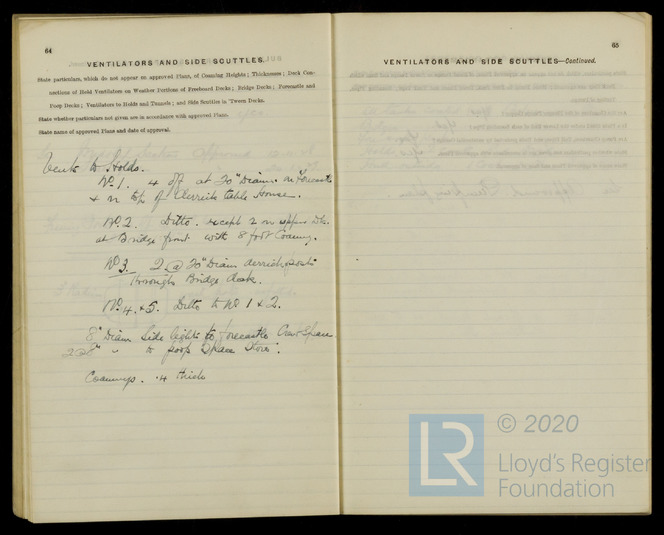 64
VENTILATORS AND SIDE SCUTTLES.
State particulars, which do not appear on approved Plans, of Coaming Heights; Thicknesses; Deck Con-
nections of Hold Ventilators on Weather Portions of Freeboard Decks; Bridge Decks; Forecastle and
Poop Decks; Ventilators to Holds and Tunnels; and Side Scuttles in 'Tween Decks.
State whether particulars not given are in accordance with approved Plans.
State name of approved Plans and date of approval.
Vents to Holds.
No. 1. 4 off at 20" Diam. on Forecastle
& on top of derrick table House.
No. 2. Ditto. except 2 on upper Dk.
at Bridge front with 8 foot Coaming.
No 3. 2 @ 20" Diam derrick posts
through Bridge deck.
No. 4. & 5. Ditto to No 1 & 2.
8" Diam Side lights to forecastle Crew Space
8" " to poop Space Store.
Coamings. .4 thick
65
VENTILATORS AND SIDE SCUTTLES—Continued.
LR
© 2020
Lloyd's Register
Foundation